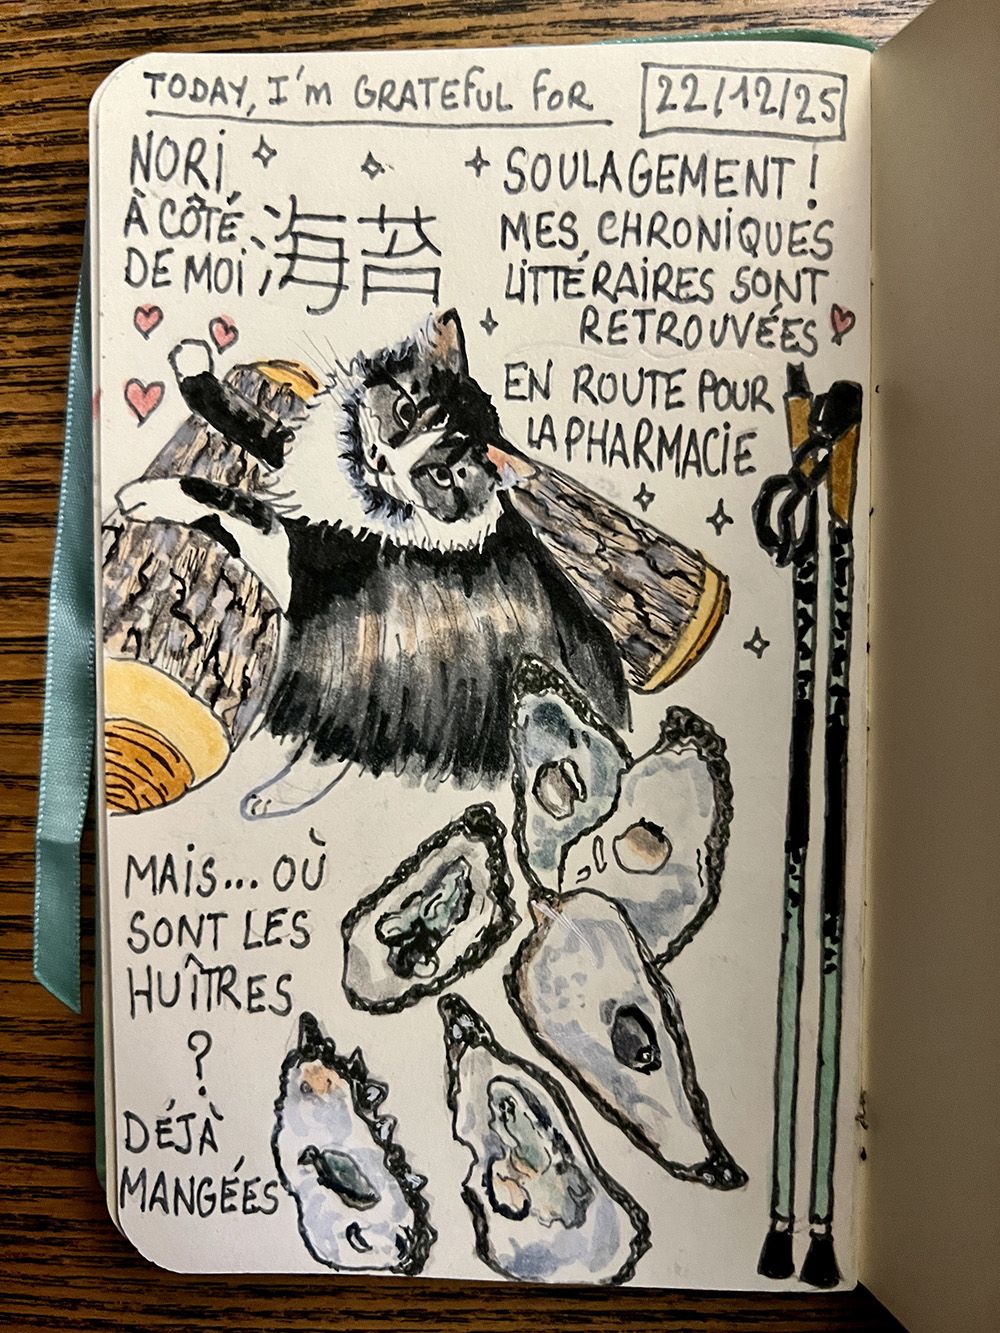 TODAY, I'm GRATEFUL FOR
22/12/25
NORI,
À CÔTÉ
DE MOI ;
海苔
SOULAGEMENT !
MES CHRONIQUES
LITTÉRAIRES SONT
RETROUVÉES
EN ROUTE POUR
LA PHARMACIE
MAIS... OÙ
SONT LES
HUÎTRES
?
DÉJÀ
MANGÉES